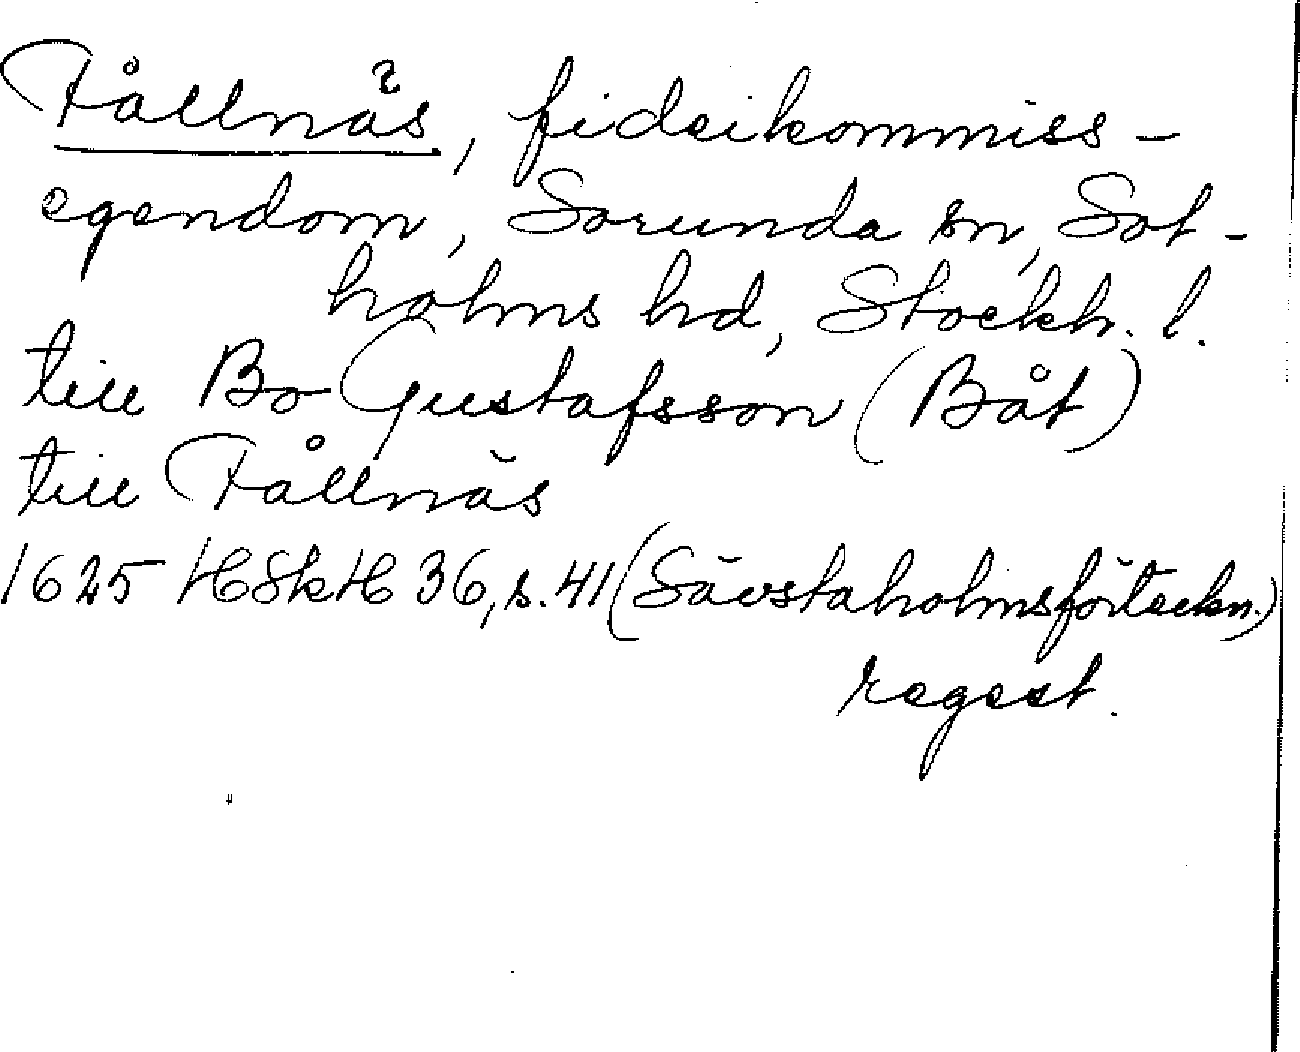 Fållnäs, fideikommiss-
egendom, Sorunda sn, Sot-
holms hd, Stockh. l.
till Bo Gustafsson (Båt)
till Fållnäs
1625 HSkH 36, s. 41 (Sävstaholmsförteckn.)
regest.